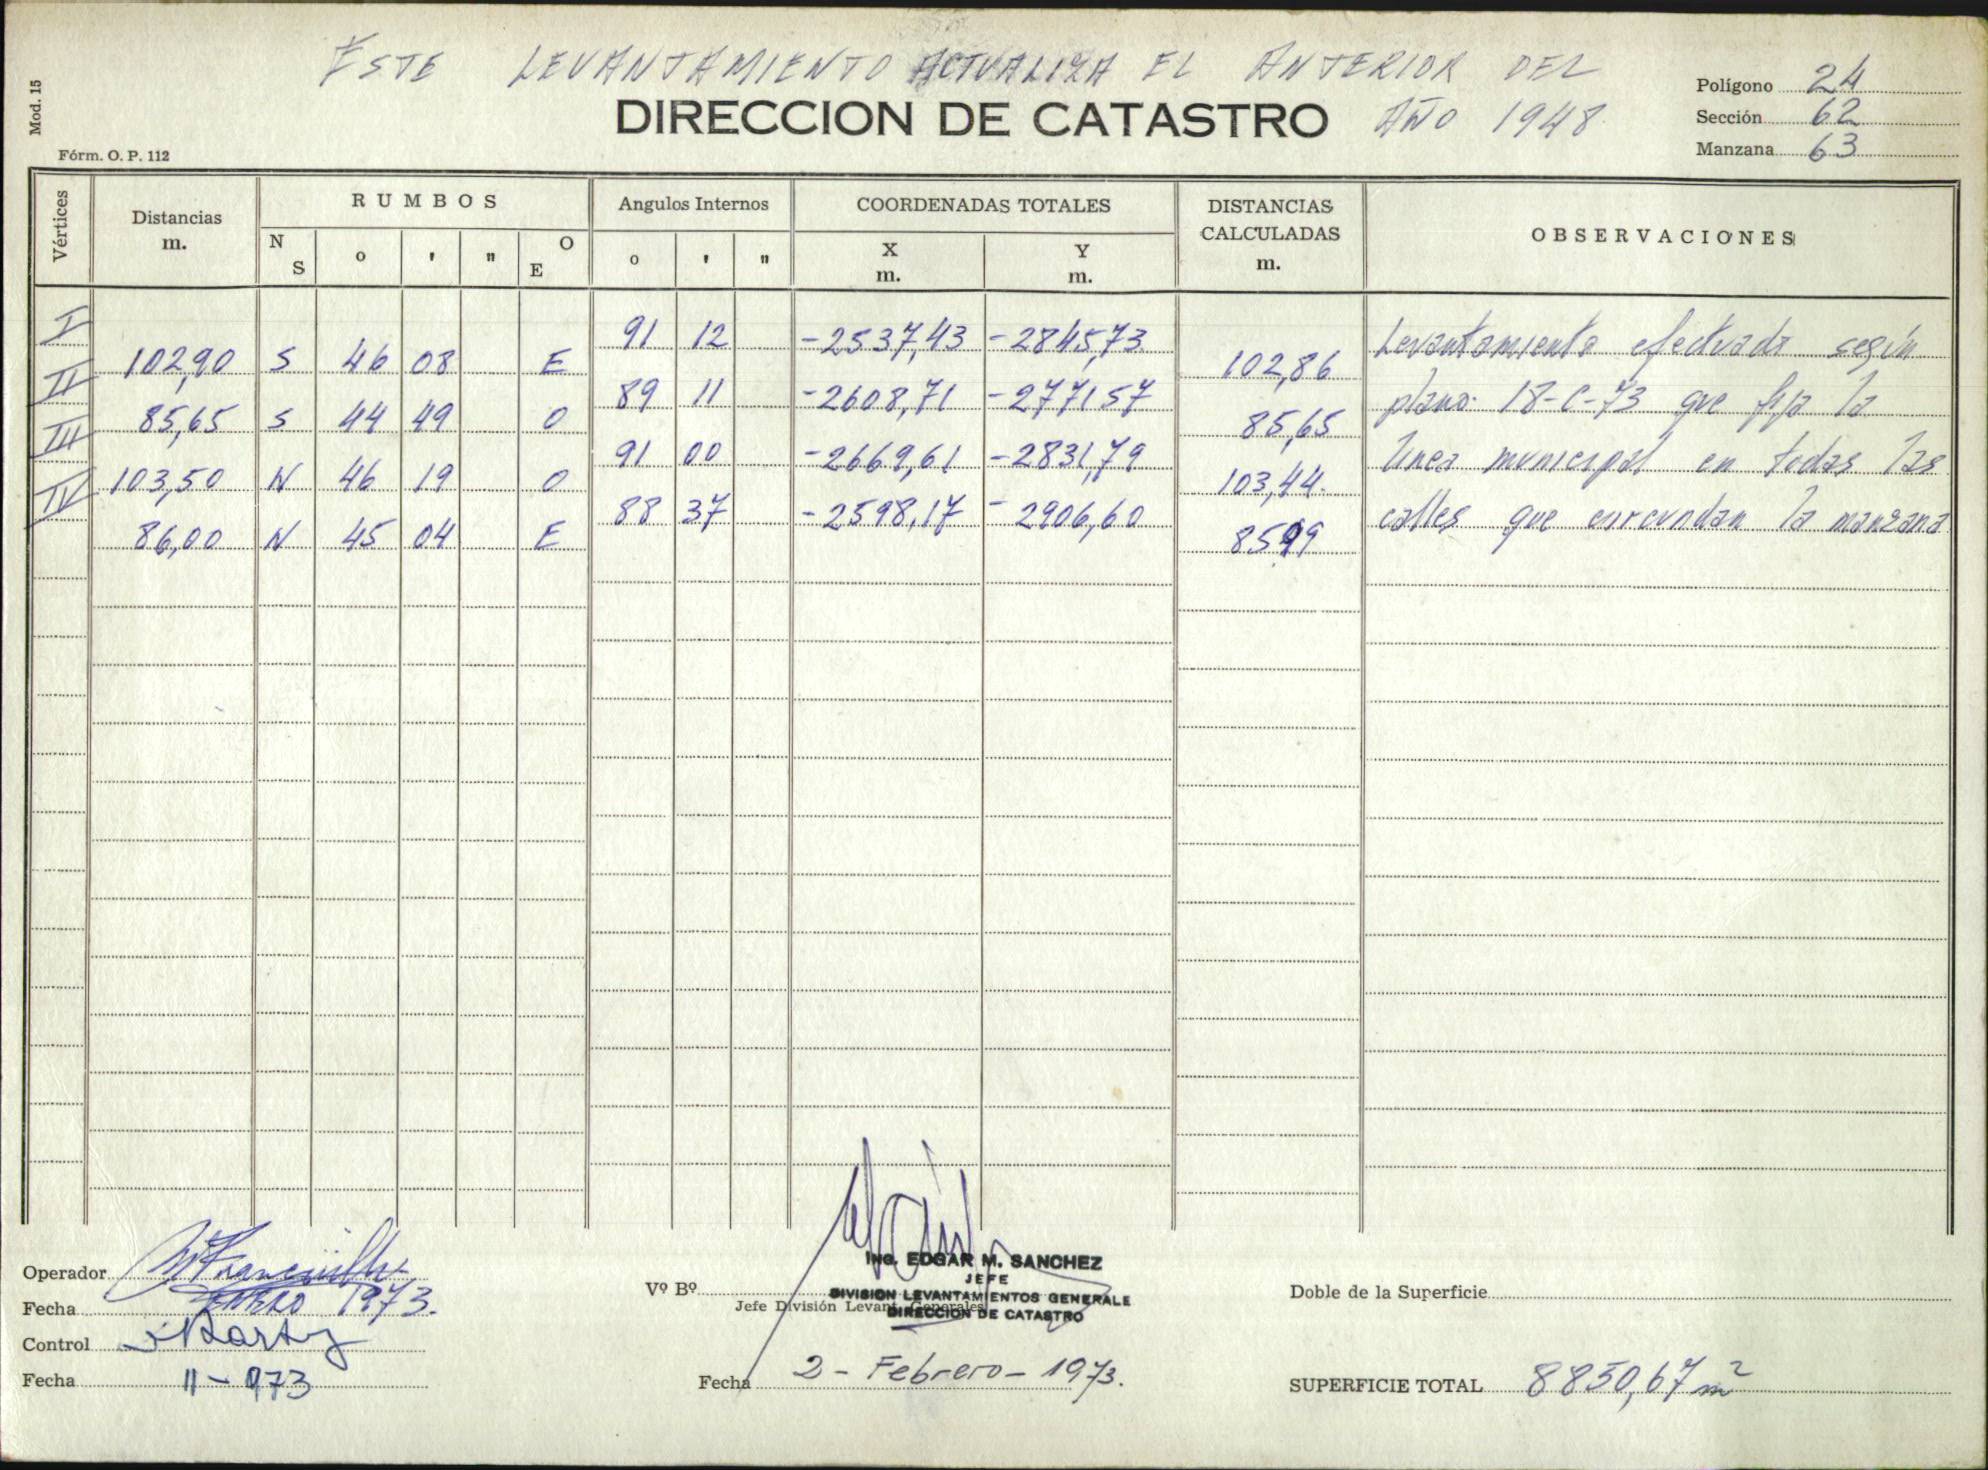 ESTE LEVANTAMIENTO ACTUALIZA EL ANTERIOR DEL
AÑO 1948
Mod. 15
DIRECCION DE CATASTRO
Fórm. O. P. 112
Polígono 24
Sección 62
Manzana 63
Vértices Distancias m. RUMBOS N S º ' " E O Angulos Internos º ' " COORDENADAS TOTALES X m. Y m. DISTANCIAS CALCULADAS m. OBSERVACIONES
I 91 12 -2537,43 -2845,73 Levantamiento efectuado según
102,90 S 46 08 E 102,86
II 89 11 -2608,71 -2771,57 plano 18-C-73 que fija la
85,65 S 44 49 O 85,65
III 91 00 -2669,61 -2831,79 línea municipal en todas las
103,50 N 46 19 O 103,44
IV 88 37 -2598,17 -2906,60 calles que circundan la manzana
86,00 N 45 04 E 85,99
Operador
Fecha ENERO 1973.
Control
Fecha 11-973
Vº Bº
Jefe División Levant. Generales
ING. EDGAR M. SANCHEZ
JEFE
DIVISION LEVANTAMIENTOS GENERALE
DIRECCION DE CATASTRO
Fecha 2-Febrero-1973.
Doble de la Superficie
SUPERFICIE TOTAL 8850,67 m²